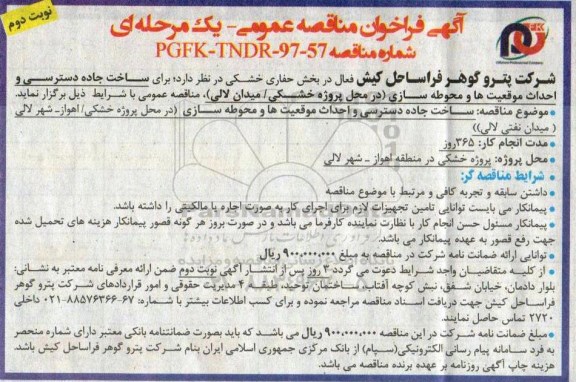 نوبت دوم
آگهی فراخوان مناقصه عمومی - یک مرحله ای
شماره مناقصه PGFK-TNDR-97-57
شرکت پترو گوهر فراساحل کیش فعال در بخش حفاری خشکی در نظر دارد؛ برای ساخت جاده دسترسی و
احداث موقعیت ها و محوطه سازی (در محل پروژه خشکی/ میدان لالی)، مناقصه عمومی با شرایط ذیل برگزار نماید.
• موضوع مناقصه: ساخت جاده دسترسی و احداث موقعیت ها و محوطه سازی (در محل پروژه خشکی/ اهواز- شهر لالی
( میدان نفتی لالی))
• مدت انجام کار: ۳۶۵روز
• محل پروژه: پروژه خشکی در منطقه اهواز – شهر لالی
• شرایط مناقصه گر:
• داشتن سابقه و تجربه کافی و مرتبط با موضوع مناقصه
• پیمانکار می بایست توانایی تامین تجهیزات لازم برای اجرای کار به صورت اجاره یا مالکیتی را داشته باشد.
• پیمانکار مسئول حسن انجام کار با نظارت نماینده کارفرما می باشد و در صورت بروز هر گونه قصور پیمانکار هزینه های تحمیل شده
جهت رفع قصور به عهده پیمانکار می باشد.
• توانایی ارائه ضمانت نامه شرکت در مناقصه به مبلغ ۹۰۰,۰۰۰,۰۰۰ ریال
• از کلیه متقاضیان واجد شرایط دعوت می گردد ۳ روز پس از انتشار آگهی نوبت دوم ضمن ارائه معرفی نامه معتبر به نشانی:
بلوار دادمان، خیابان شفق، نبش کوچه آفتاب، ساختمان توحید، طبقه ۴ مدیریت حقوقی و امور قراردادهای شرکت پترو گوهر
فراساحل کیش جهت دریافت اسناد مناقصه مراجعه نموده و برای کسب اطلاعات بیشتر با شماره: ۶۷-۸۸۵۷۶۳۶۶-۰۲۱ داخلی
۲۷۲۰ تماس حاصل نمایند.
• مبلغ ضمانت نامه شرکت در این مناقصه ۹۰۰,۰۰۰,۰۰۰ ریال می باشد که باید بصورت ضمانتنامه بانکی معتبر دارای شماره منحصر
به فرد سامانه پیام رسانی الکترونیکی(سپام) از بانک مرکزی جمهوری اسلامی ایران بنام شرکت پترو گوهر فراساحل کیش باشد.
هزینه چاپ آگهی روزنامه بر عهده برنده مناقصه می باشد.